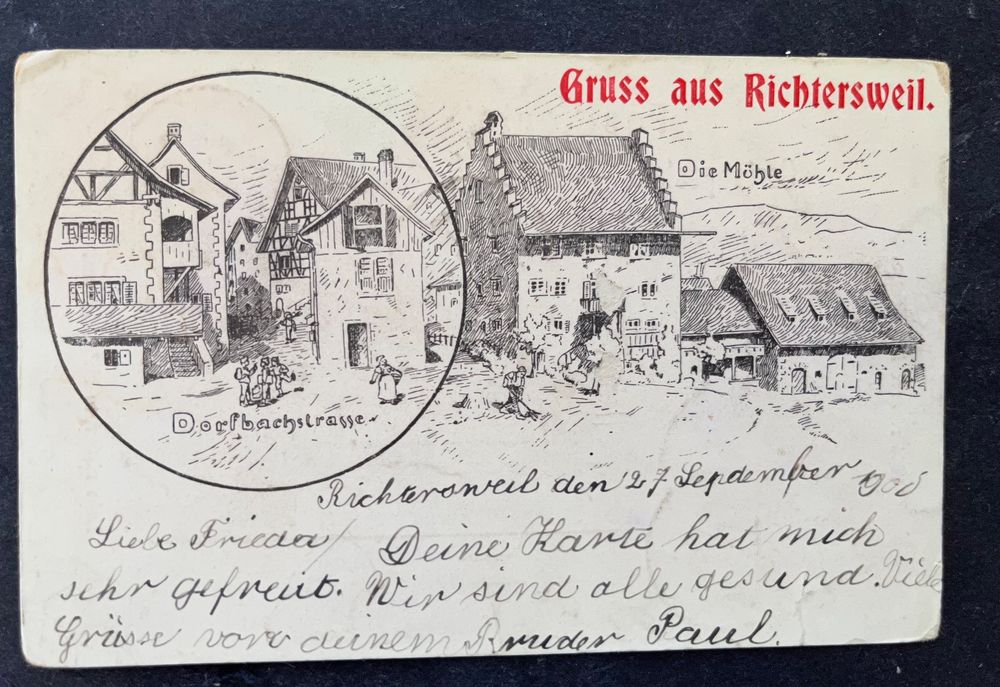 Gruss aus Richtersweil.
Die Mühle
Dorfbachstrasse
Richtersweil den 27 September 1900
Liebe Frieda / Deine Karte hat mich
sehr gefreut. Wir sind alle gesund. Viele
Grüsse von deinem Bruder Paul.